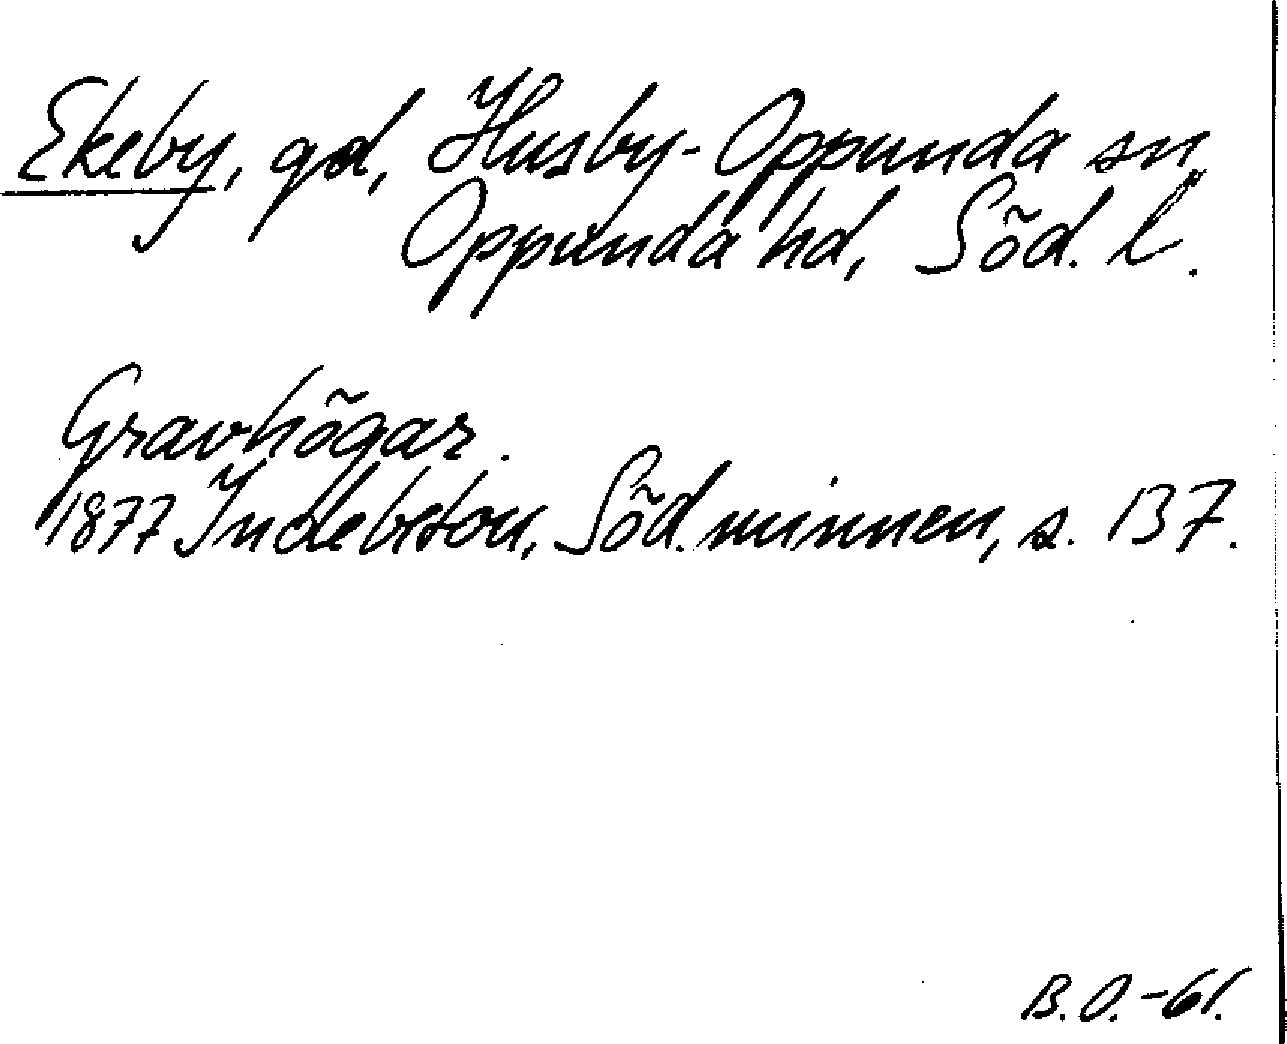 Ekeby, gd, Husby-Oppunda sn,
Oppunda hd, Söd. l.
Gravhögar.
1877 Indebetou, Söd. minnen, s. 137.
B.O.-61.